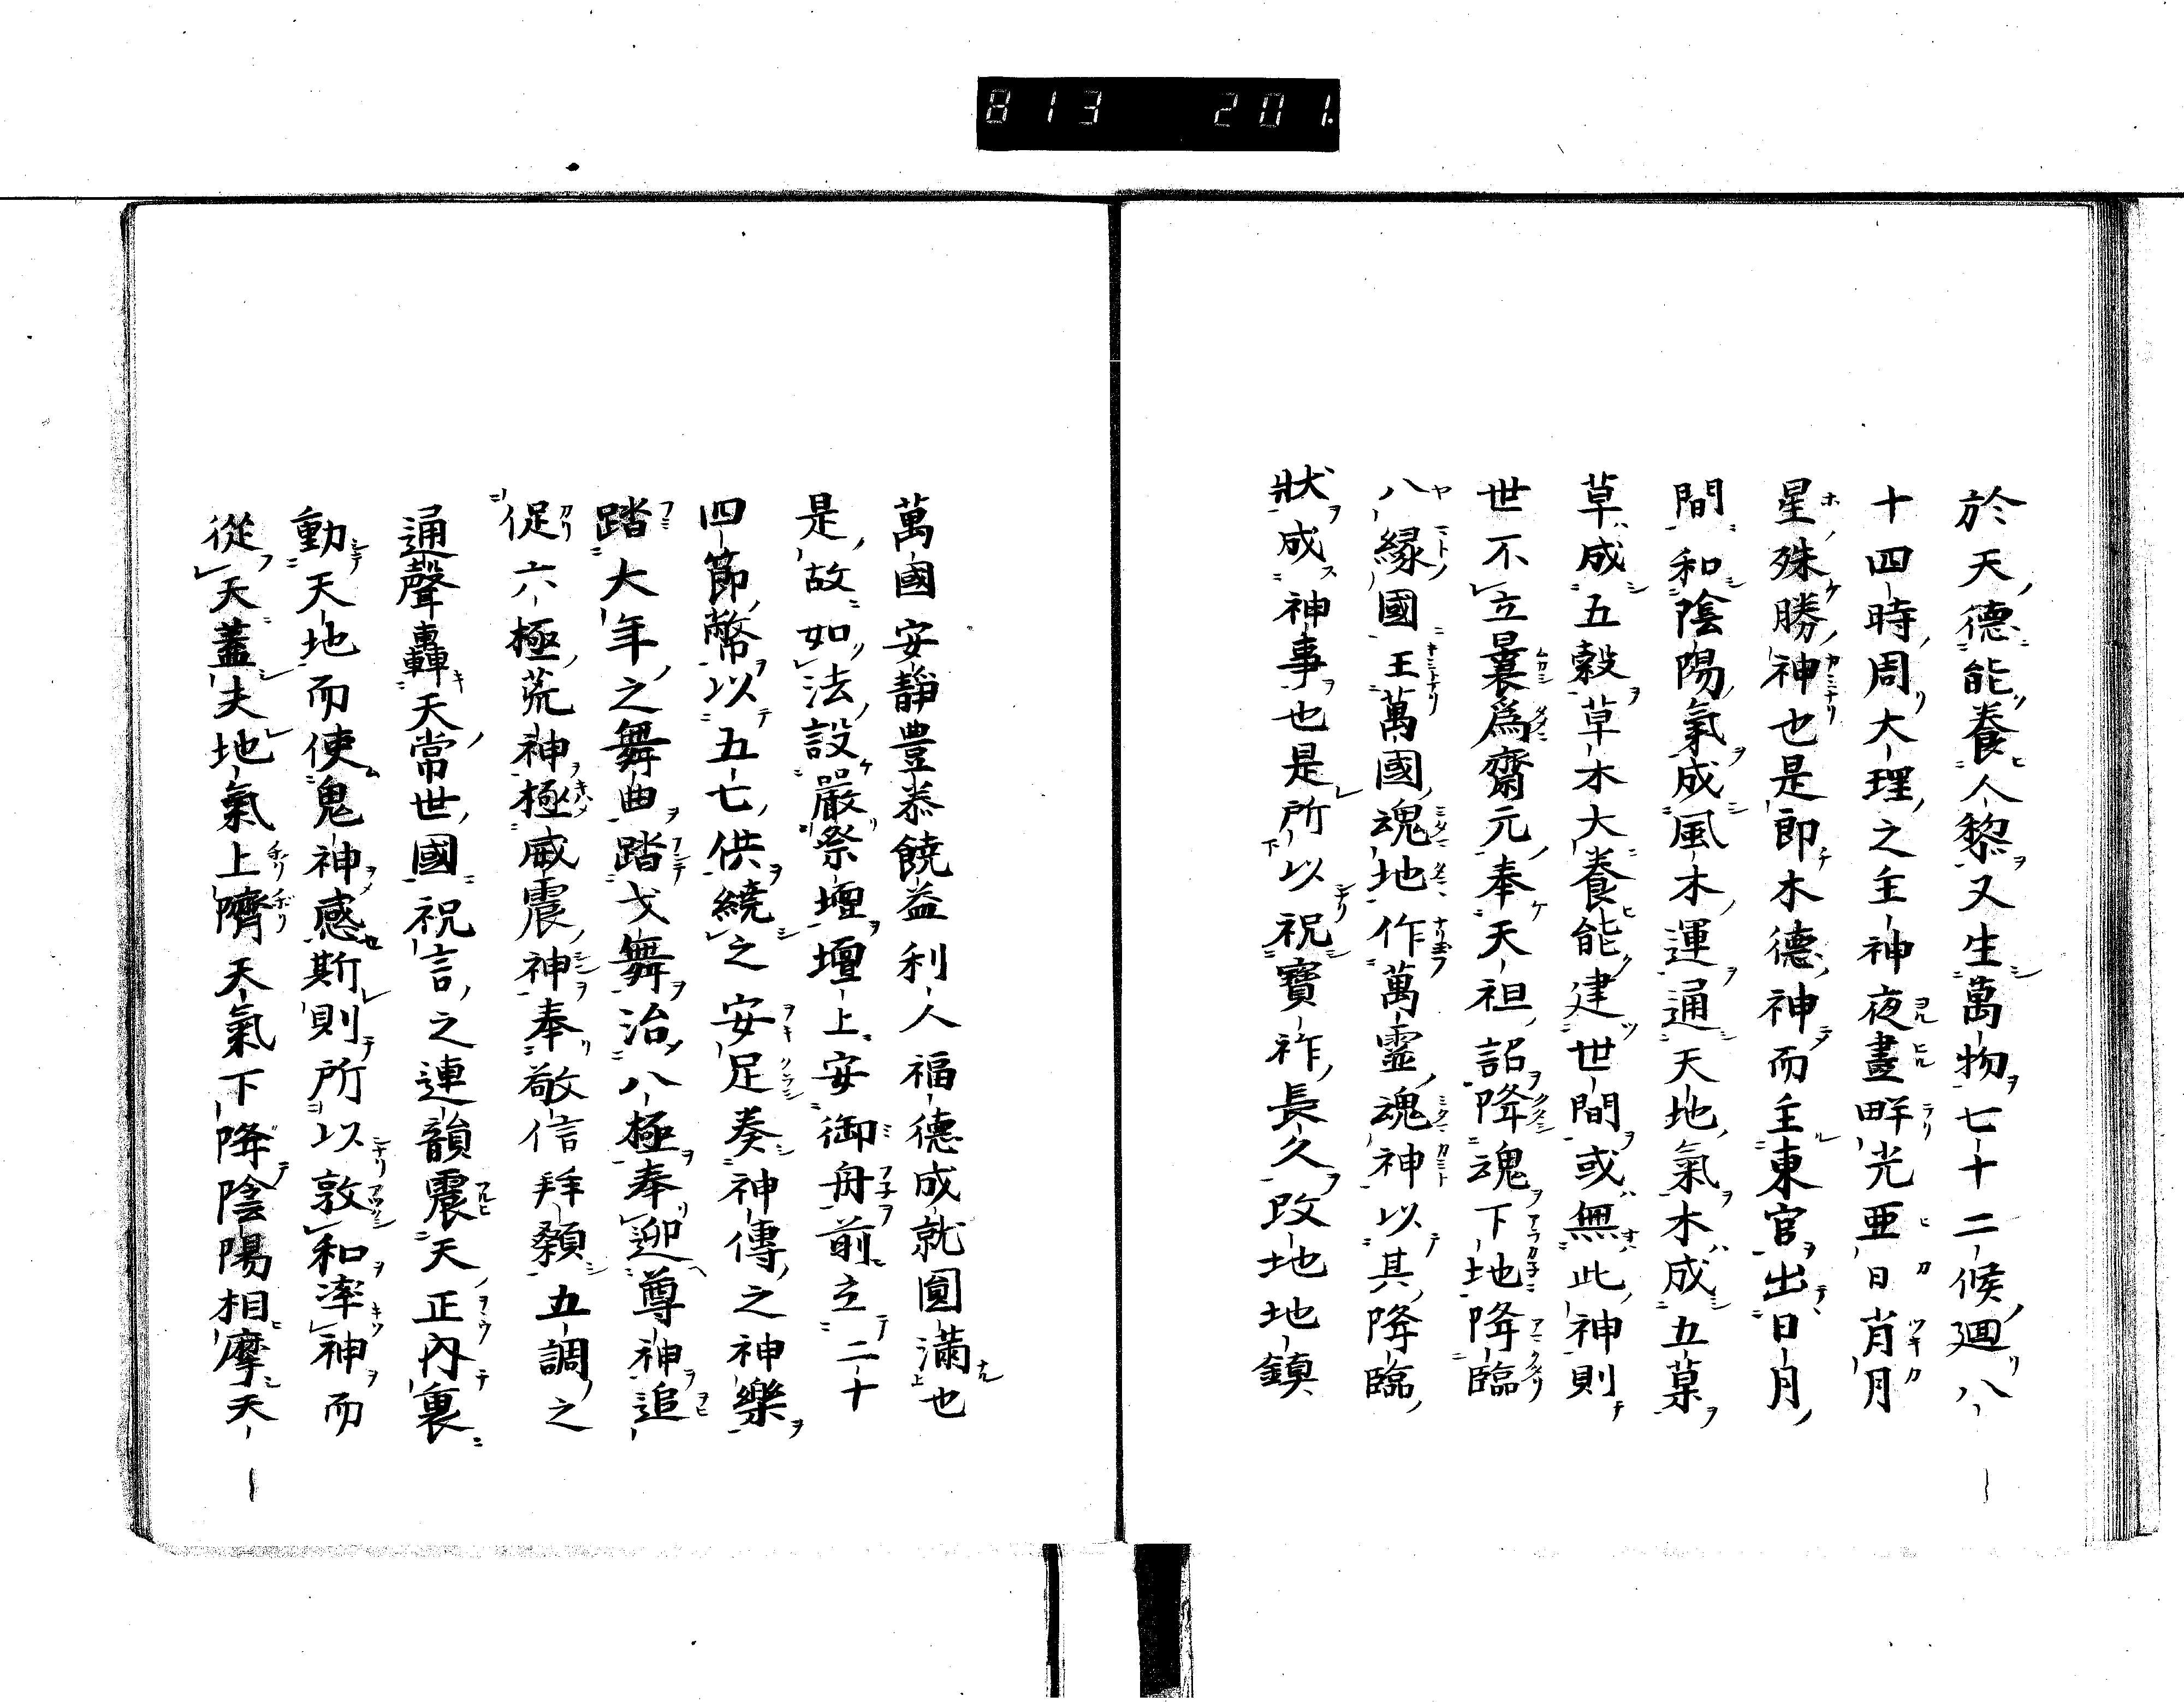 813 201.
於天德能養人黎又生萬物七十二候廻八
十四時周大理之主神夜晝畔光亜日肖月
星殊勝神也是即木德神而主東官出日月
間和陰陽氣成風木運通天地氣木成五菓
草成五穀草木大養能建世間或無此神則
世不立曩爲齋元奉天祖詔降魂下地降臨
八縁國王萬國魂地作萬靈魂神以其降臨
狀成神事也是所以祝寶祚長久改地地鎮
萬國安靜豊恭饒益利人福德成就圓滿也
是故如法設嚴祭壇壇上安御舟前立二十
四節幣以五七供繞之安足奏神傳之神樂
踏大年之舞曲踏戈舞治八極奉迎尊神追
促六極荒神極威震神奉敬信拜顙五調之
通聲轟天常世國祝言之連韻震天正内裏
動天地而使鬼神感斯則所以敦和率神而
從天蓋夫地氣上隮天氣下降陰陽相摩天